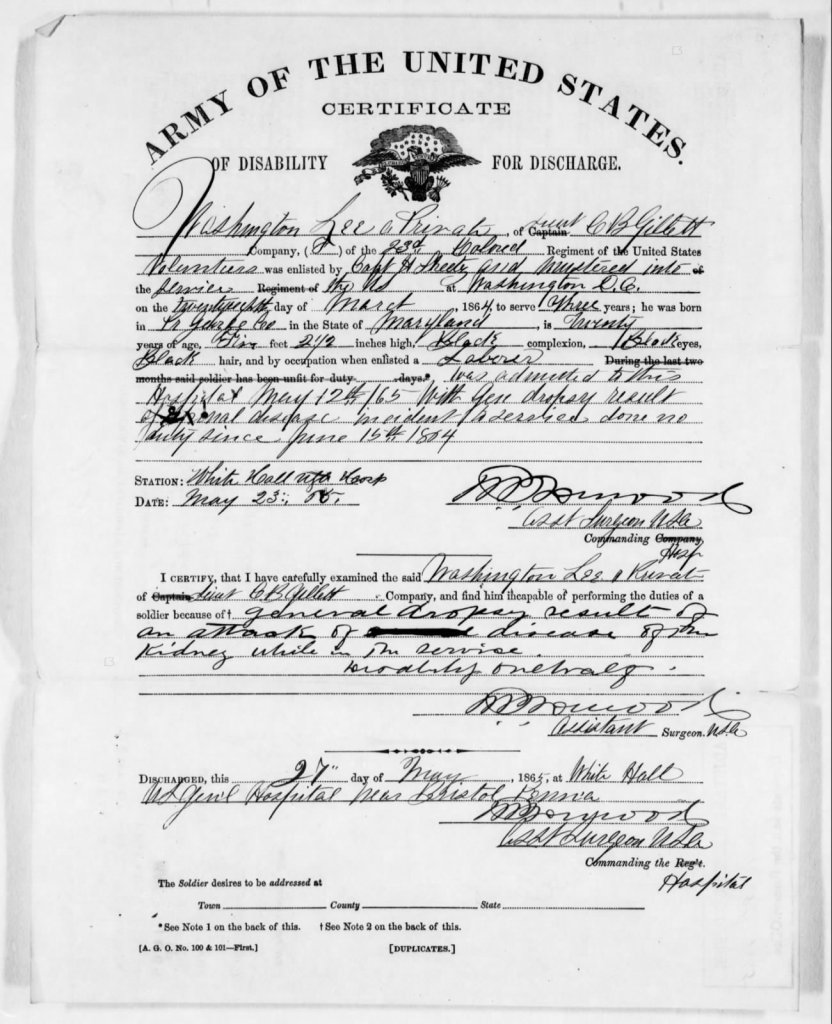 ARMY OF THE UNITED STATES.
CERTIFICATE
OF DISABILITY FOR DISCHARGE.
Washington Lee a Private, of Captain Lieut C B Gillett
Company, ( ) of the 23d Colored Regiment of the United States
Volunteers was enlisted by Capt H and Mustered into of
the Service Regiment of the US at Washington D.C.
on the day of March, 1864, to serve Three years; he was born
in Pr George Co in the State of Maryland, is Twenty
years of age, Five feet 2 1/2 inches high, Black complexion, Black eyes,
Black hair, and by occupation when enlisted a Laborer During the last two
months said soldier has been unfit for duty days.* was admitted to this
Hospital May 12th /65 With Gen dropsy result
of renal disease incident to service done no
duty since June 15th 1864
STATION: White Hall Hosp
DATE: May 23, 65.
Asst Surgeon USA
Commanding Company,
Hosp
I CERTIFY, that I have carefully examined the said Washington Lee a Private
of Captain Lieut C B Gillett Company, and find him incapable of performing the duties of a
soldier because of† general dropsy result of
an attack of disease of the
Kidney while in the service.
Disability one half.
Assistant Surgeon. USA
DISCHARGED, this 27" day of May, 1865, at White Hall
US Genl Hospital near Bristol Penna
Asst Surgeon USA
Commanding the Reg't.
Hospital
The Soldier desires to be addressed at
Town County State
*See Note 1 on the back of this. †See Note 2 on the back of this.
[A. G. O. No. 100 & 101—First.] [DUPLICATES.]